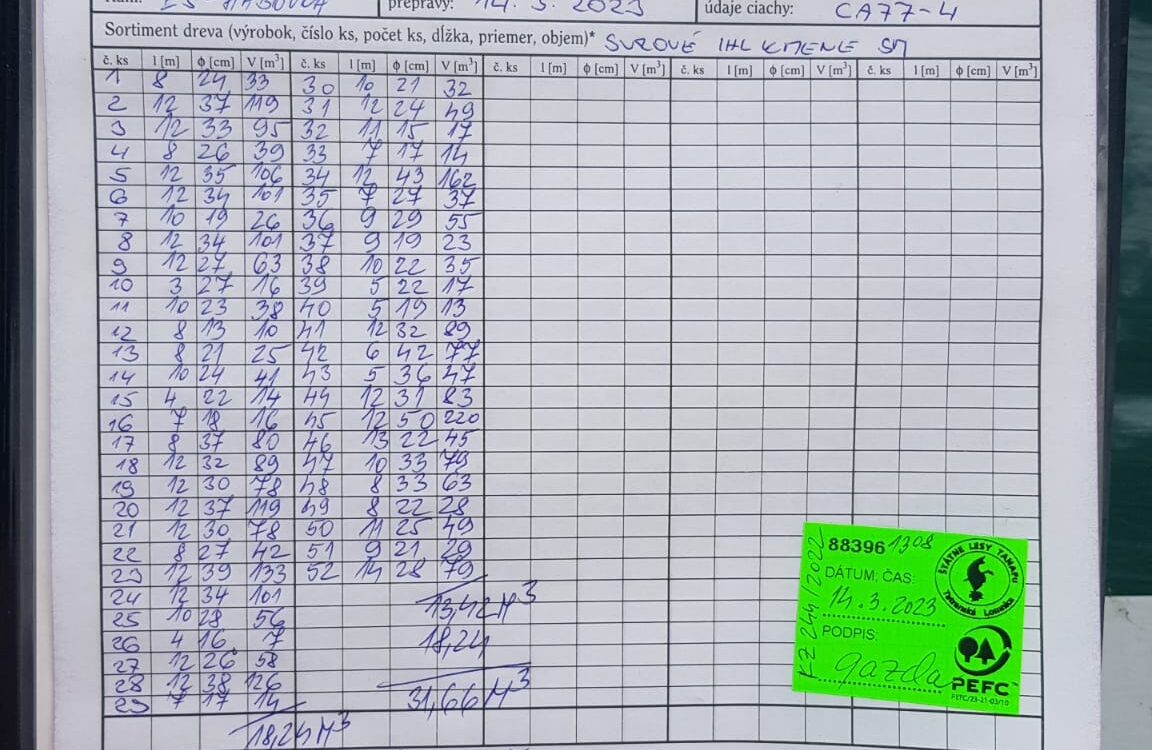 prepravy: 14. 3. 2023 údaje ciachy: CA77-4
Sortiment dreva (výrobok, číslo ks, počet ks, dĺžka, priemer, objem)* SUROVÉ IHL KMENE SM
č. ks l [m] ϕ [cm] V [m³] č. ks l [m] ϕ [cm] V [m³] č. ks l [m] ϕ [cm] V [m³] č. ks l [m] ϕ [cm] V [m³] č. ks l [m] ϕ [cm] V [m³]
1 8 24 33 30 10 21 32
2 12 37 119 31 12 24 49
3 12 33 95 32 11 15 17
4 8 26 39 33 7 17 14
5 12 35 106 34 12 43 162
6 12 34 101 35 7 27 37
7 10 19 26 36 9 29 55
8 12 34 101 37 9 19 23
9 12 27 63 38 10 22 35
10 3 27 16 39 5 22 17
11 10 23 38 40 5 19 13
12 8 13 10 41 12 32 89
13 8 21 25 42 6 42 77
14 10 24 41 43 5 36 47
15 4 22 14 44 12 31 83
16 7 18 16 45 12 50 220
17 8 37 80 46 13 22 45
18 12 32 89 47 10 33 79
19 12 30 78 48 8 33 63
20 12 37 119 49 8 22 28
21 12 30 78 50 11 25 49
22 8 27 42 51 9 21 29
23 12 39 133 52 14 28 79
24 12 34 101
25 10 28 56
26 4 16 7
27 12 26 58
28 12 38 126
29 7 17 14
13,42 M³
18,24
31,66 M³
18,24 M³
88396 1308
ŠTÁTNE LESY TANAPU
Tatranská Lomnica
DÁTUM; ČAS:
14.3.2023
PODPIS:
gazda
KZ 244/2022
PEFC
PEFC/23-21-03/10